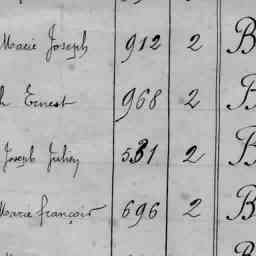 Marie Joseph 912 2 B
Ernest 968 2 B
Joseph Julien 531 2 B
Marie françois 696 2 B